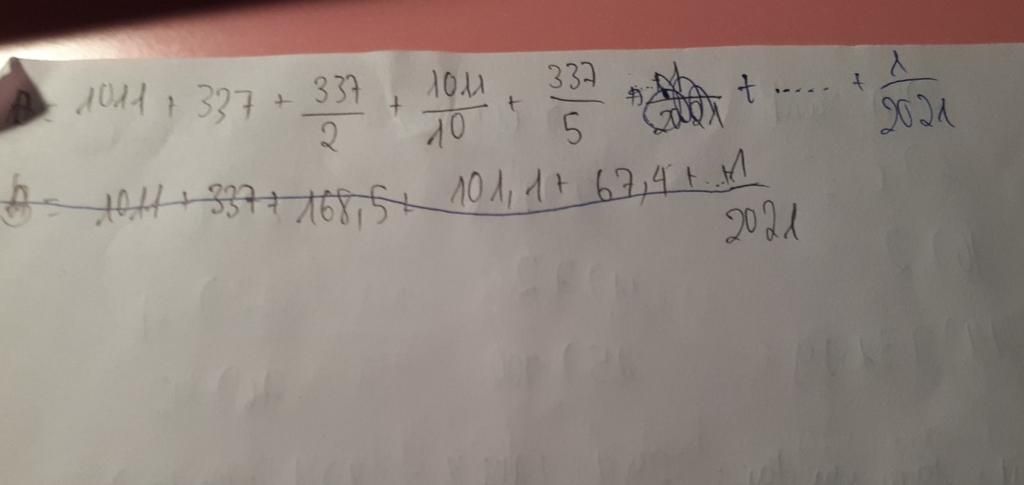 A = 1011 + 337 + 337/2 + 1011/10 + 337/5 + ..... + 1/2021
A = 1011 + 337 + 168,5 + 101,1 + 67,4 + ... + 1/2021